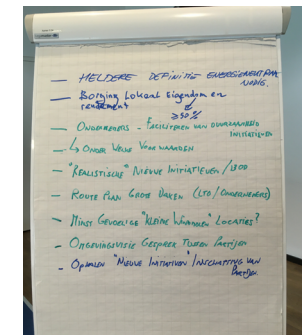 — HELDERE DEFINITIE ENERGIENEUTRAAL NODIG.
— Borging Lokaal Eigendom en rendement
≥50%
— ONDERNEMERS - FACILITEREN VAN DUURZAAMHEID INITIATIEVEN
— ↳ ONDER WELKE VOORWAARDEN
— "REALISTISCHE" NIEUWE INITIATIEVEN /
— ROUTE PLAN GROTE DAKEN (LTO / ONDERNEMERS)
— MINST GEVOELIGE "KLEINE WINDMOLEN" LOCATIES?
— OMGEVINGSVISIE GESPREK TUSSEN PARTIJEN
— OPHALEN "NIEUWE INITIATIEVEN" INSCHATTING VAN PARTIJEN